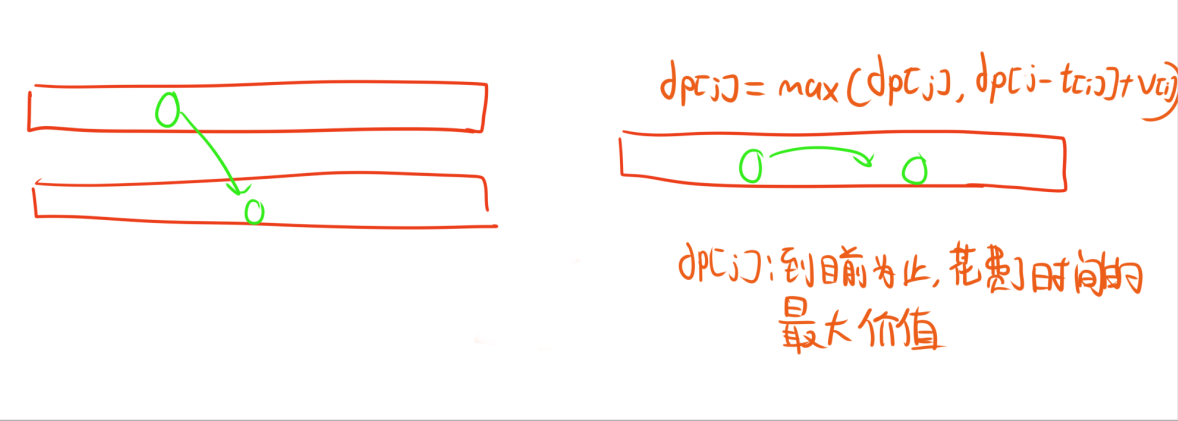 dp[j]=max(dp[j],dp[j-t[i]]+v[i])
dp[j]:到目前为止,花费j时间的
最大价值